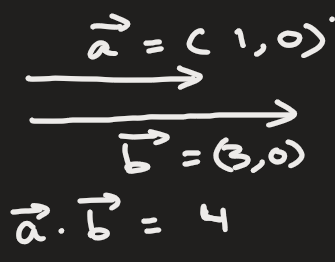 a⃗ = (1,0)
b⃗ = (3,0)
a⃗ · b⃗ = 4